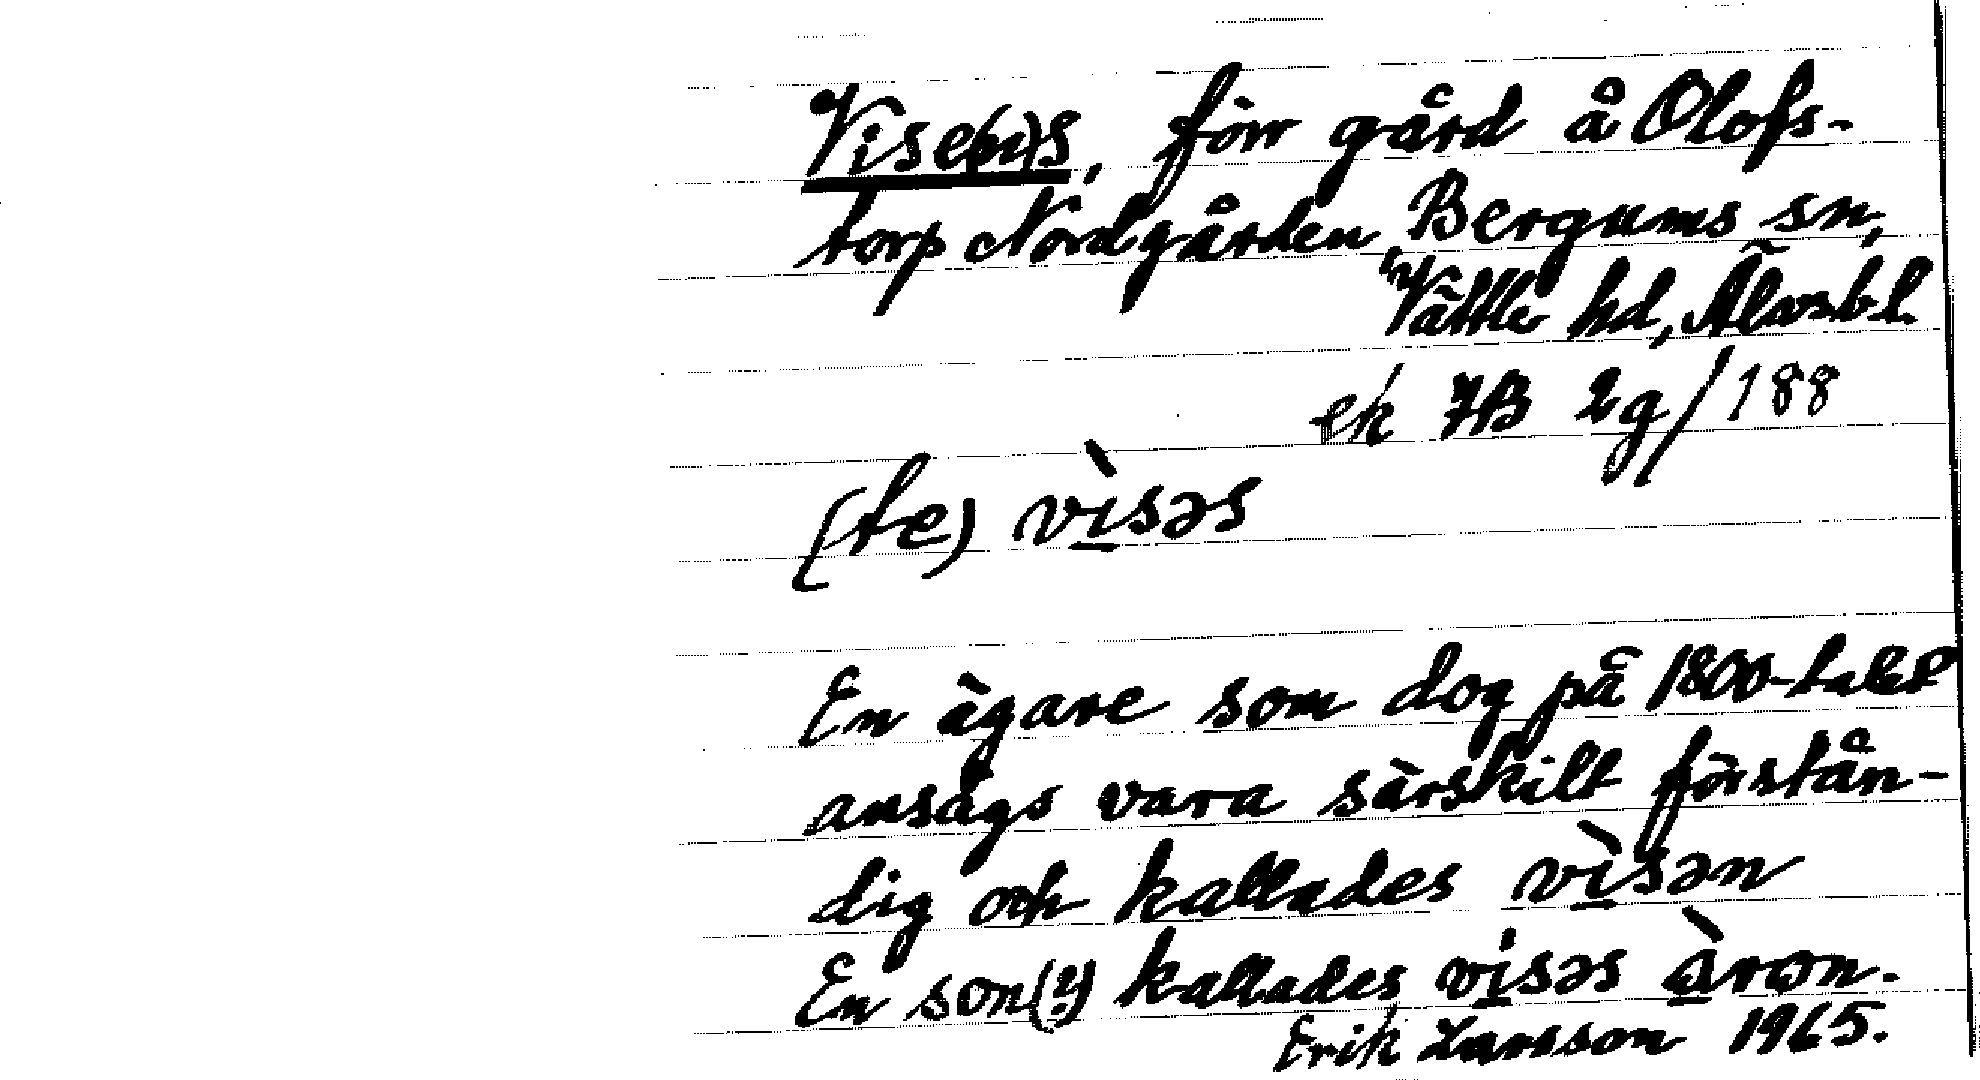 Vise(n)s, förr gård å Olofs-
torp Nordgården, Bergums sn,
Vättle hd, Älvsb.l.
ek 7B 2g/188
(te) vìsəs
En ägare som dog på 1800-talet
ansågs vara särskilt förstån-
dig och kallades vìsən
En son(?) kallades visəs àron.
Erik Larsson 1965.